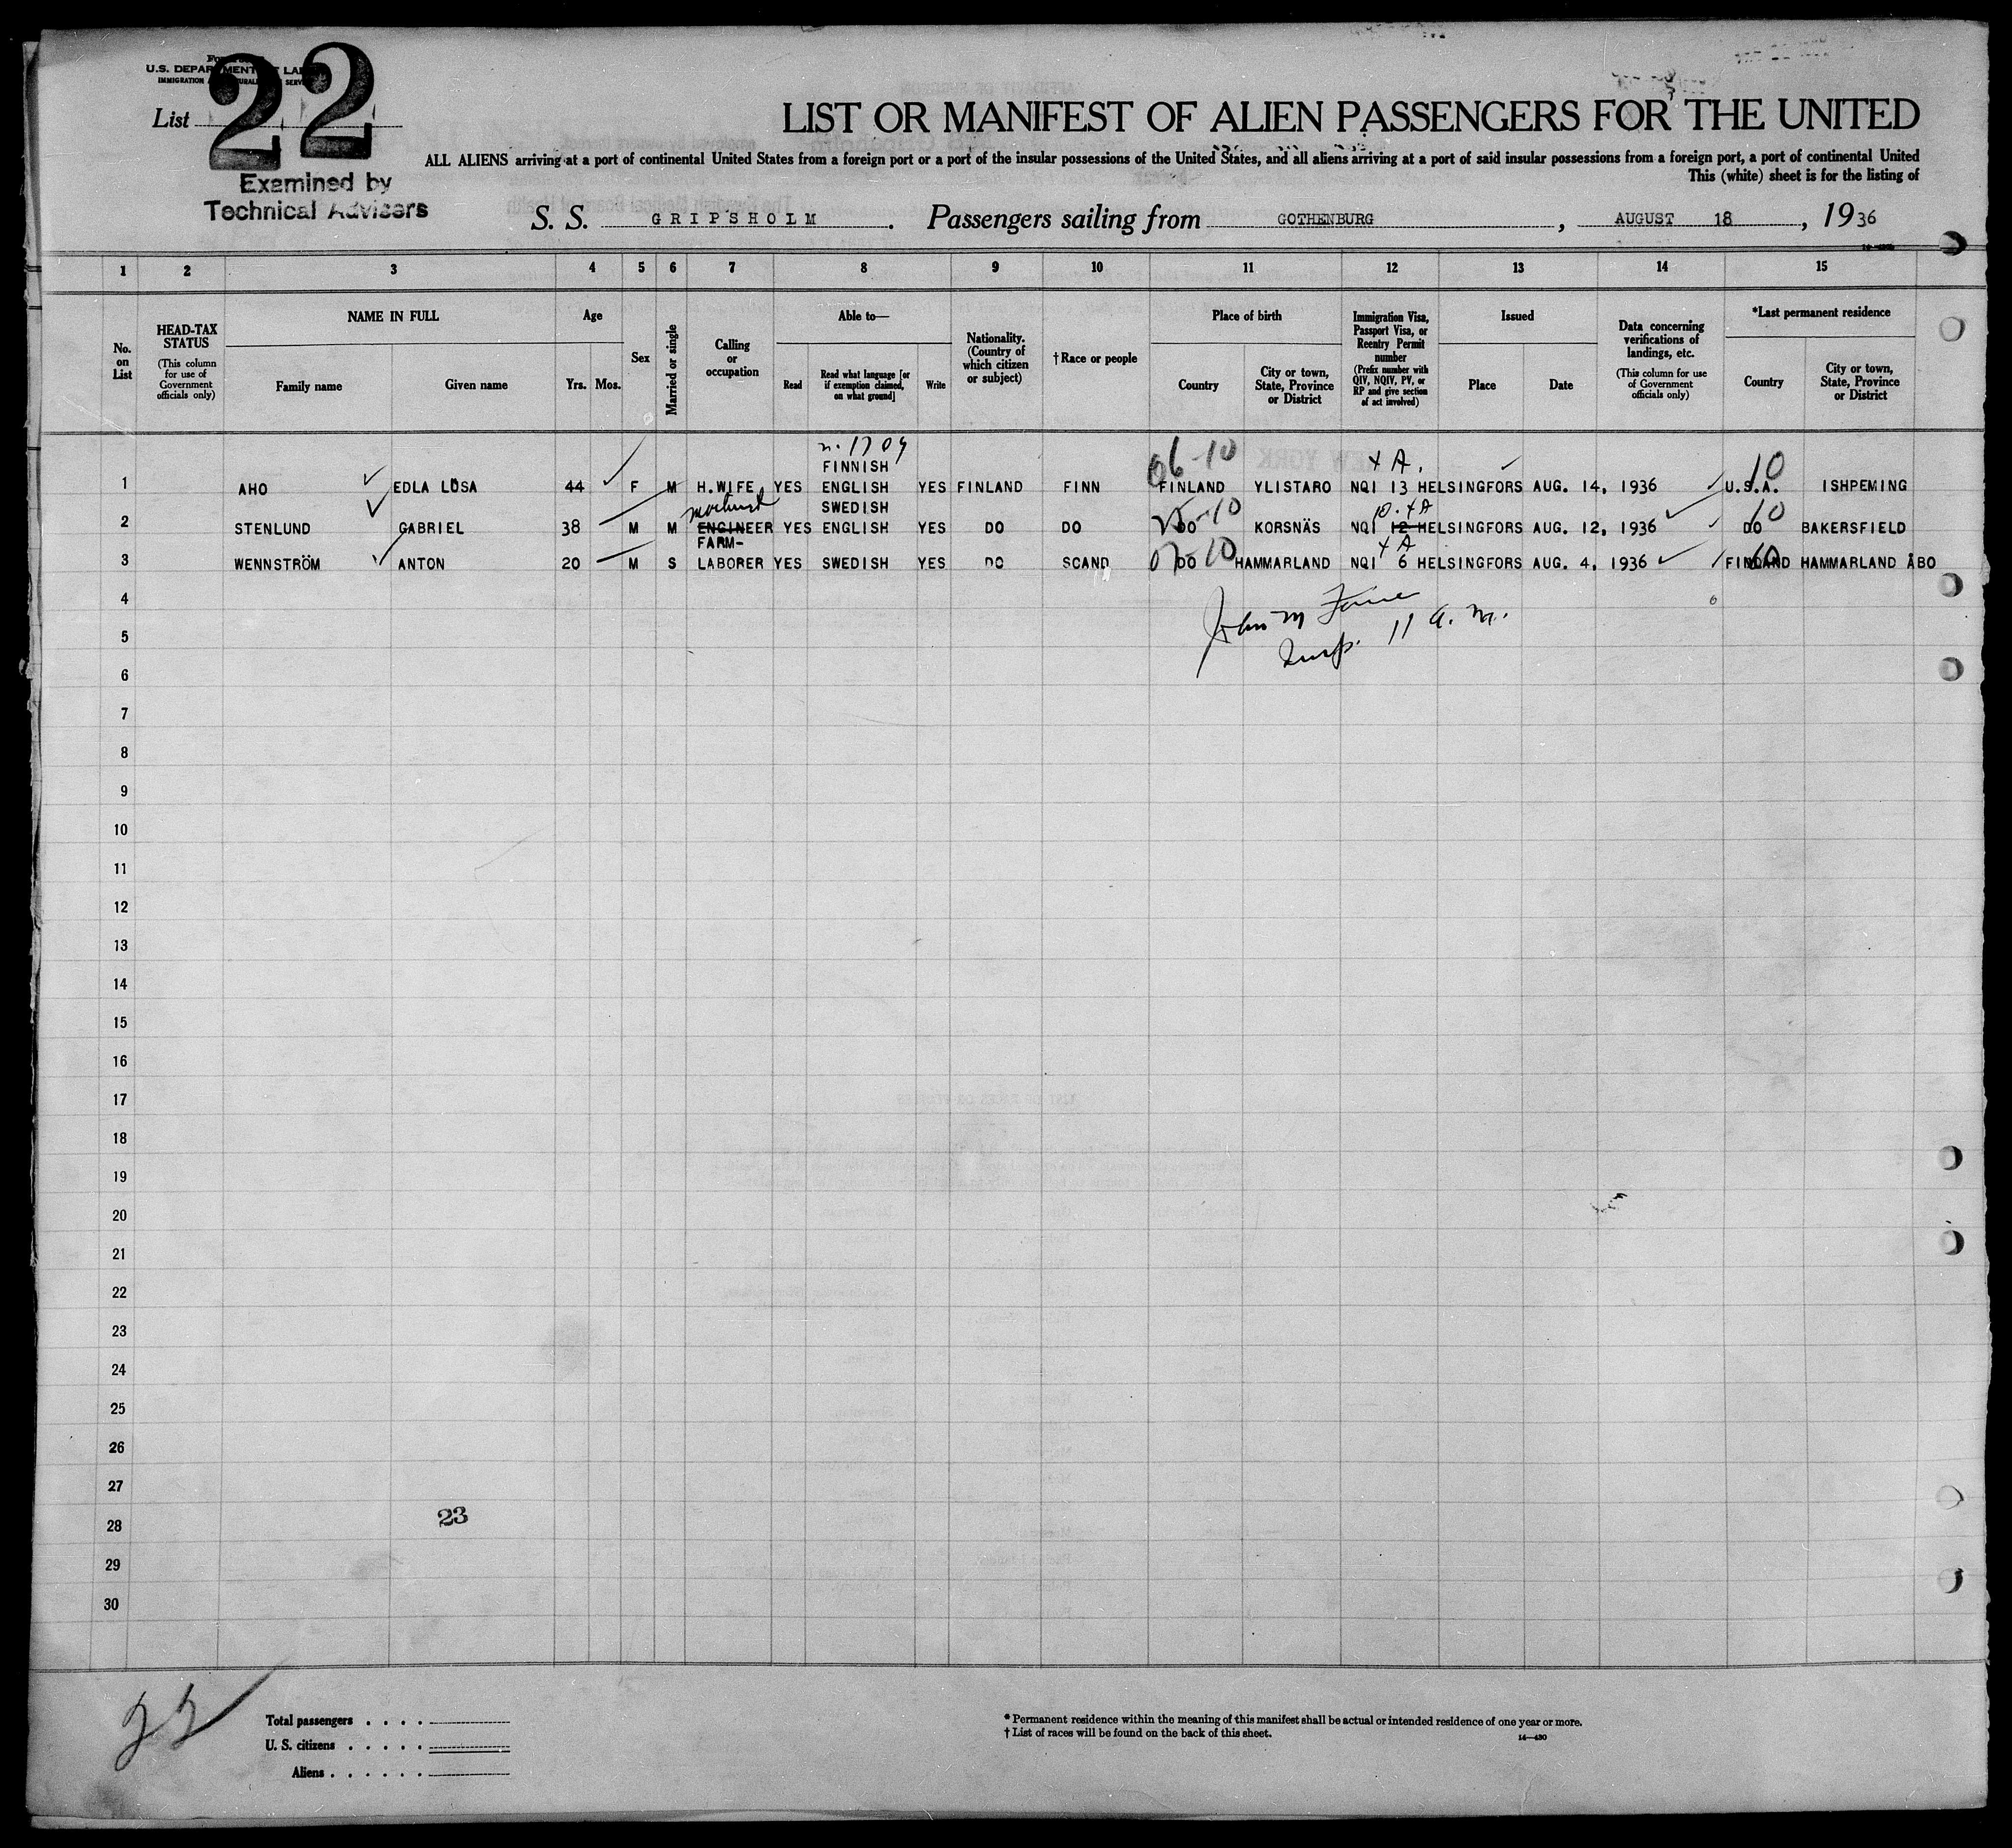 U.S. DEPARTMENT OF LABOR
List 22
Examined by
Technical Advisers
LIST OR MANIFEST OF ALIEN PASSENGERS FOR THE UNITED
ALL ALIENS arriving at a port of continental United States from a foreign port or a port of the insular possessions of the United States, and all aliens arriving at a port of said insular possessions from a foreign port, a port of continental United
This (white) sheet is for the listing of
S. S. GRIPSHOLM. Passengers sailing from GOTHENBURG, AUGUST 18, 1936
1 2 3 4 5 6 7 8 9 10 11 12 13 14 15
No. on List
HEAD-TAX STATUS
(This column for use of Government officials only)
NAME IN FULL
Family name Given name
Age
Yrs. Mos.
Sex
Married or single
Calling or occupation
Able to—
Read
Read what language [or if exemption claimed, on what ground]
Write
Nationality. (Country of which citizen or subject)
†Race or people
Place of birth
Country
City or town, State, Province or District
Immigration Visa, Passport Visa, or Reentry Permit number
(Prefix number with QIV, NQIV, PV, or RP and give section of act involved)
Issued
Place Date
Data concerning verifications of landings, etc.
(This column for use of Government officials only)
*Last permanent residence
Country
City or town, State, Province or District
06-10 + A. 10
FINNISH
1 AHO EDLA LÖSA 44 F M H.WIFE YES ENGLISH YES FINLAND FINN FINLAND YLISTARO NQI 13 HELSINGFORS AUG. 14, 1936 U.S.A. ISHPEMING
SWEDISH
10. + A 10
2 STENLUND GABRIEL 38 M M ENGINEER YES ENGLISH YES DO DO DO KORSNÄS NQI 12 HELSINGFORS AUG. 12, 1936 DO BAKERSFIELD
FARM-
+ A
3 WENNSTRÖM ANTON 20 M S LABORER YES SWEDISH YES DO SCAND DO HAMMARLAND NQI 6 HELSINGFORS AUG. 4, 1936 FINLAND HAMMARLAND ÅBO
4
John M
5
Insp. 11 a. m.
6
7
8
9
10
11
12
13
14
15
16
17
18
19
20
21
22
23
24
25
26
27
23
28
29
30
22
Total passengers
U. S. citizens
Aliens
* Permanent residence within the meaning of this manifest shall be actual or intended residence of one year or more.
† List of races will be found on the back of this sheet.
14—430